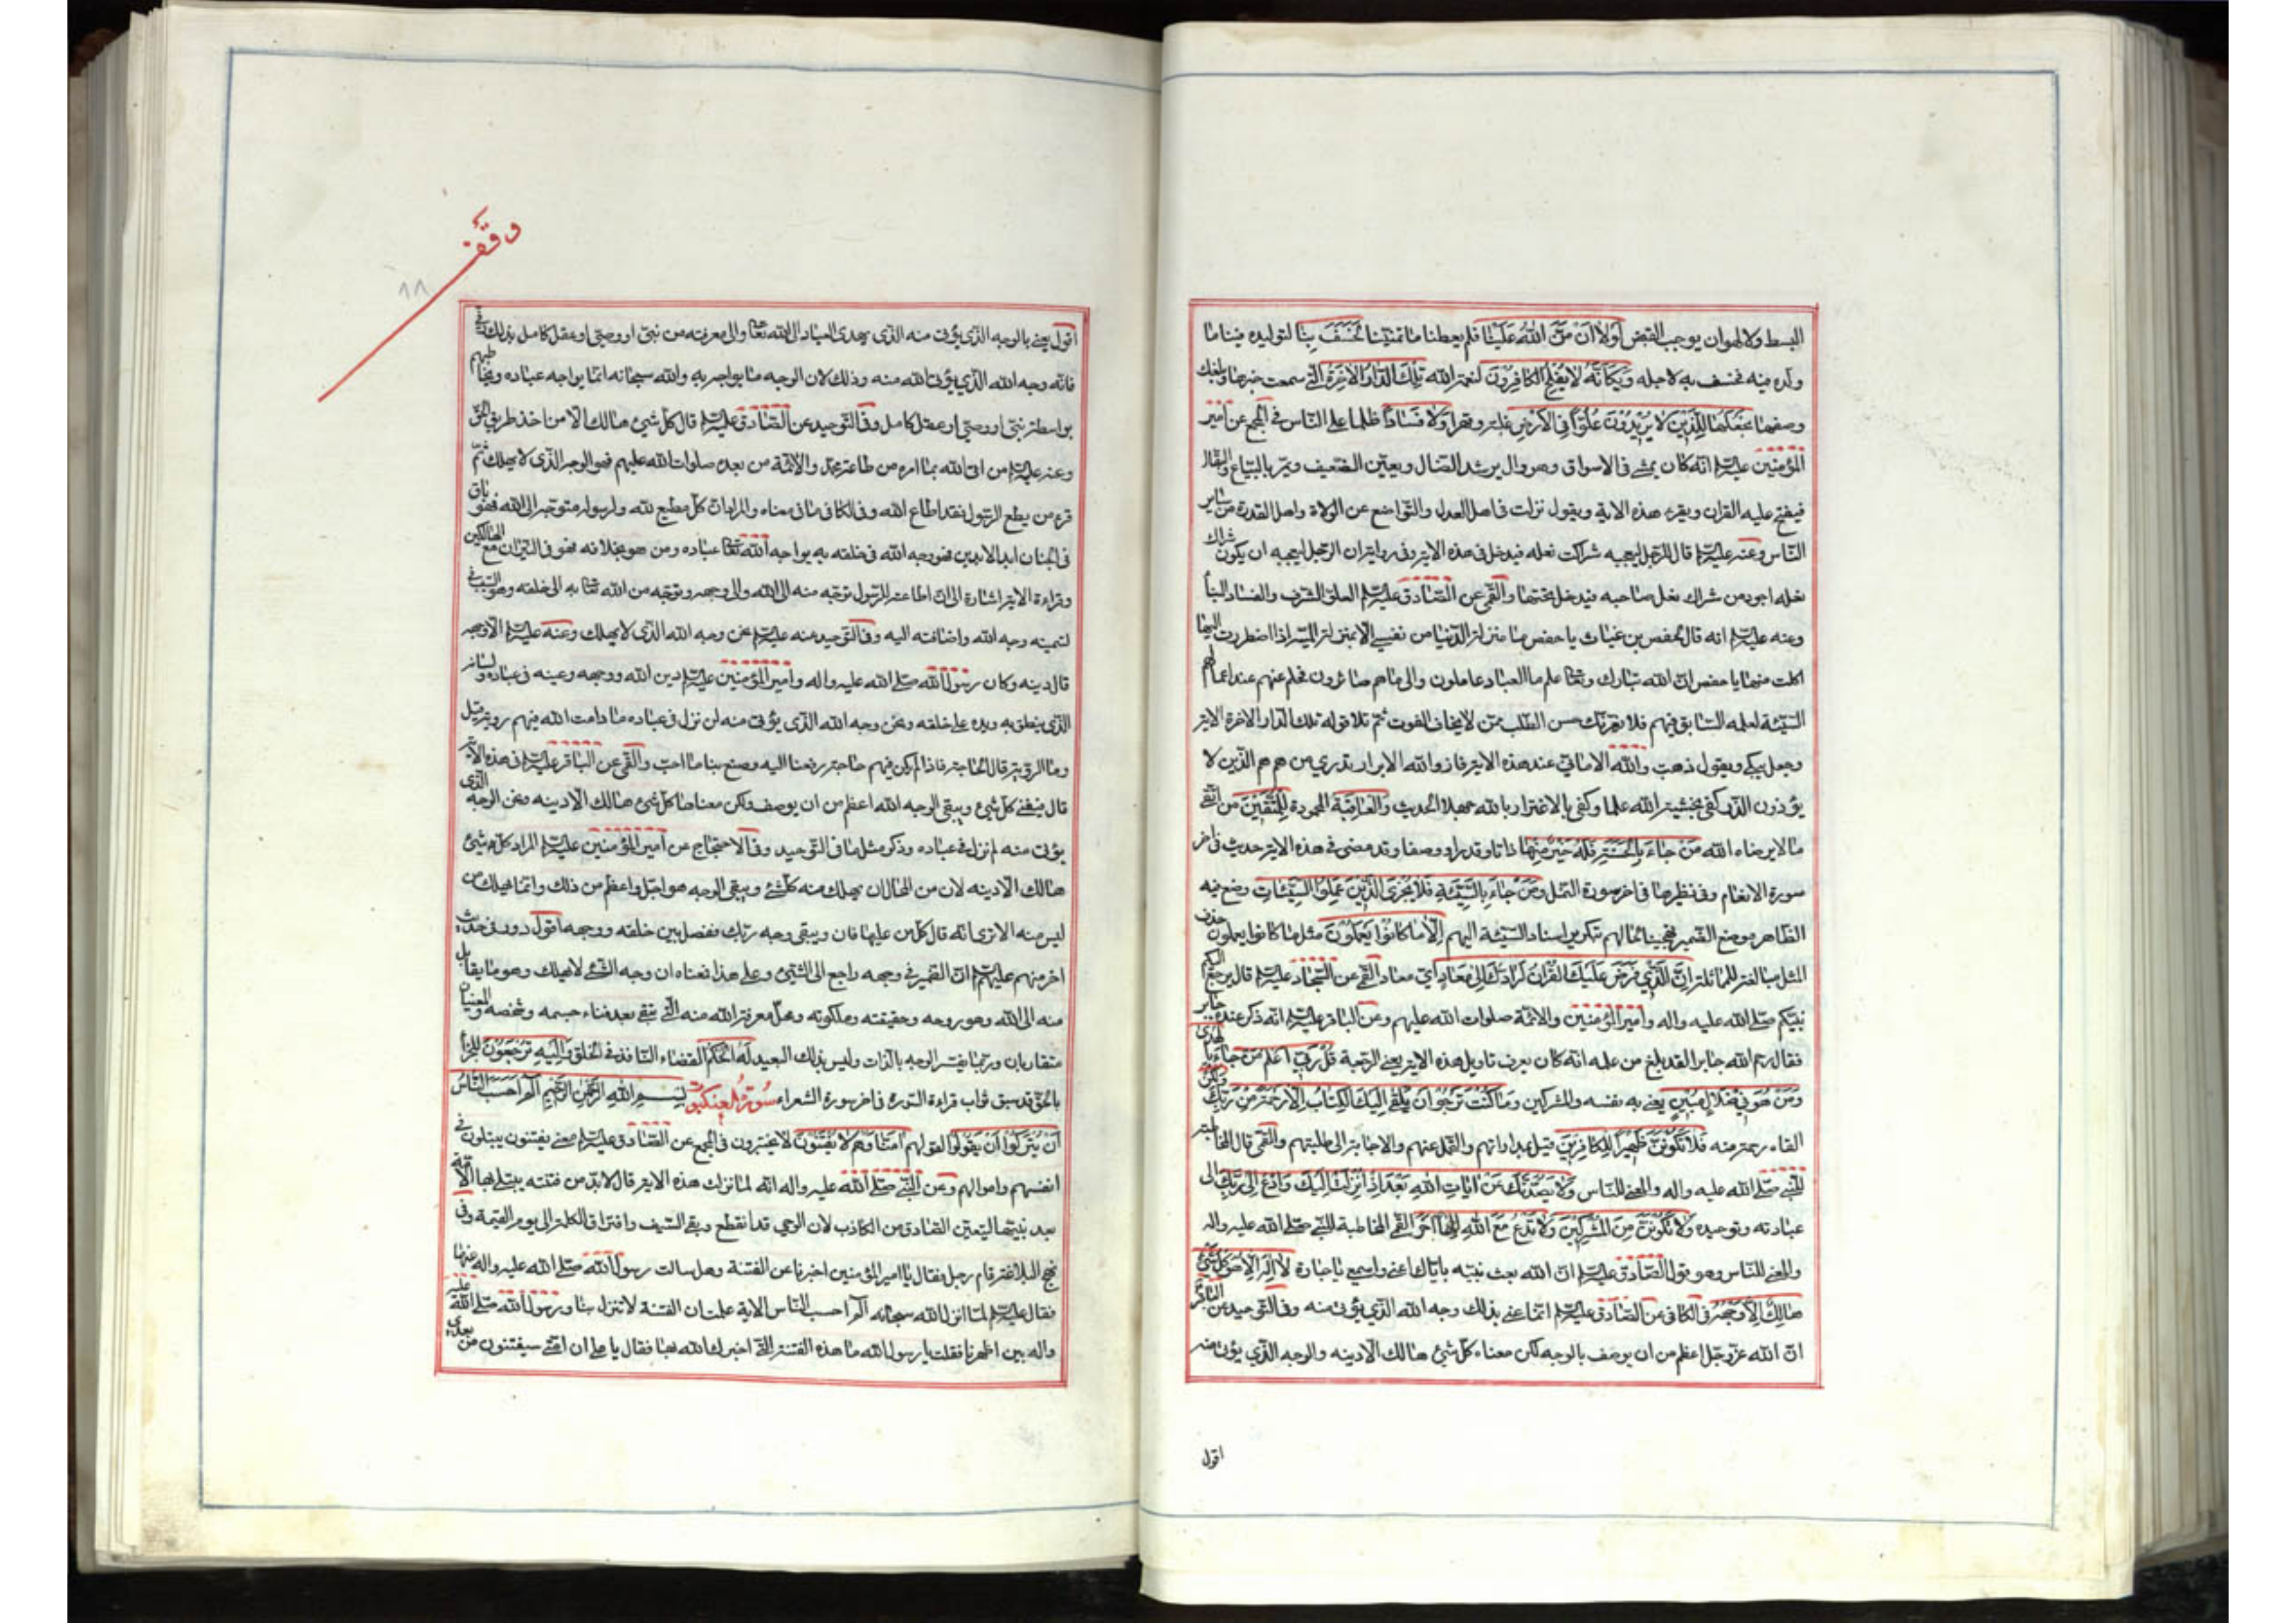 البسط ولا لهوان يوجب القبض لَوْلَا أَنْ مَنَّ اللَّهُ عَلَيْنَا فلم يعطنا ما تمنّينا لَخَسَفَ بِنَا لتوليده فينا ما
ولّده فيه فخسف به لاجله وَيْكَأَنَّهُ لَا يُفْلِحُ الْكَافِرُونَ لنعمة الله تِلْكَ الدَّارُ الْآخِرَةُ الّتي سمعت خبرها وبلغك
وصفها نَجْعَلُهَا لِلَّذِينَ لَا يُرِيدُونَ عُلُوًّا فِي الْأَرْضِ غلبة وقهرا وَلَا فَسَادًا ظلما على النّاس في المجمع عن امير
المؤمنين عليه السلم انّه كان يمشي في الاسواق وهو وال يرشد الضال ويعين الضّعيف ويمرّ بالبيّاع والبقّال
فيفتح عليه القران ويقرء هذه الاية ويقول نزلت في اهل العدل والتّواضع من الولاة واهل القدرة من ساير
النّاس وعنه عليه السلم قال الرّجل ليعجبه شراك نعله فيدخل في هذه الاية وفي رواية ان الرّجل ليعجبه ان يكون شراك
نعله اجود من شراك نعل صاحبه فيدخل تحتها والقمّي عن الصّادق عليه السلم العلوّ الشّرف والفساد البنأ
وعنه عليه السلم انه قال لحفص بن غياث يا حفص ما منزلة الدّنيا من نفسي الا بمنزلة الميتة اذا اضطررت اليها
اكلت منها يا حفص انّ الله تبارك وتعالى علم ما العباد عاملون والى ما هم صائرون فحلم عنهم عند اعمالهم
السّيّئة لعلمه السّابق فيهم فلا يغرّنّك حسن الطّلب ممّن لا يخاف الفوت ثمّ تلا قوله تلك الدّار الاخرة الاية
وجعل يبكي ويقول ذهبت والله الاماني عند هذه الاية فاز والله الابرار تدري من هم هم الّذين لا
يؤذون الذّر كفى بخشية الله علما وكفى بالاغترار بالله جهلا الحديث وَالْعَاقِبَةُ المحمودة لِلْمُتَّقِينَ من اتّقى
ما لا يرضاه الله مَنْ جَاءَ بِالْحَسَنَةِ فَلَهُ خَيْرٌ مِنْهَا ذاتا وقدرا ووصفا وقد مضى في هذه الاية حديث في اخر
سورة الانعام وفي نظيرها في اخر سورة النّمل وَمَنْ جَاءَ بِالسَّيِّئَةِ فَلَا يُجْزَى الَّذِينَ عَمِلُوا السَّيِّئَاتِ وضع فيه
الظّاهر موضع الضّمير تهجينا لحالهم بتكرير اسناد السّيّئة اليهم إِلَّا مَا كَانُوا يَعْمَلُونَ مثل ما كانوا يعملون حذف
المثل مبالغة للمماثلة إِنَّ الَّذِي فَرَضَ عَلَيْكَ الْقُرْآنَ لَرَادُّكَ إِلَى مَعَادٍ ايّ معاد القمّي عن السّجّاد عليه السلم قال يرجع اليكم
نبيّكم صلّى الله عليه واله وامير المؤمنين والائمّة صلوات الله عليهم وعن الباقر عليه السلم انّه ذكر عنده جابر
فقال رحم الله جابرا لقد بلغ من علمه انه كان يعرف تاويل هذه الاية يعني الرّجعة قُلْ رَبِّي أَعْلَمُ مَنْ جَاءَ بِالْهُدَى
وَمَنْ هُوَ فِي ضَلَالٍ مُبِينٍ يعني به نفسه والمشركين وَمَا كُنْتَ تَرْجُو أَنْ يُلْقَى إِلَيْكَ الْكِتَابُ إِلَّا رَحْمَةً مِنْ رَبِّكَ ولكن
القاه رحمة منه فَلَا تَكُونَنَّ ظَهِيرًا لِلْكَافِرِينَ قيل بمداراتهم والتّحمّل عنهم والاجابة الى طلبتهم والقمّي قال المخاطبة
للنّبي صلّى الله عليه واله والمعنيّ للنّاس وَلَا يَصُدُّنَّكَ عَنْ آيَاتِ اللَّهِ بَعْدَ إِذْ أُنْزِلَتْ إِلَيْكَ وَادْعُ إِلَى رَبِّكَ الى
عبادته وتوحيده وَلَا تَكُونَنَّ مِنَ الْمُشْرِكِينَ وَلَا تَدْعُ مَعَ اللَّهِ إِلَهًا آخَرَ القمّي المخاطبة للنّبي صلّى الله عليه واله
والمعنيّ للنّاس وهو قول الصّادق عليه السلم انّ الله بعث نبيّه بايّاك اعني واسمعي يا جارة لَا إِلَهَ إِلَّا هُوَ كُلُّ شَيْءٍ
هَالِكٌ إِلَّا وَجْهَهُ في الكافي عن الصّادق عليه السلم انّما عني بذلك وجه الله الّذي يؤتى منه وفي التّوحيد عن الباقر
انّ الله عزّ وجلّ اعظم من ان يوصف بالوجه لكن معناه كلّ شيئ هالك الّا دينه والوجه الّذي يؤتى منه
اقول
وقف
١١
اقول يعني بالوجه الّذي يؤتى منه الّذي يهدي العباد الى الله تعالى والى معرفته من نبيّ او وصيّ او عقل كامل بذلك وفي
فانّه وجه الله الّذي يؤتى الله منه وذلك لان الوجه ما يواجه به والله سبحانه انّما يواجه عباده ويخاطبهم
بواسطة نبيّ او وصيّ او عقل كامل وفي التّوحيد عن الصّادق عليه السلم قال كلّ شيئ هالك الّا من اخذ طريق الحقّ
وعنه عليه السلم من اتى الله بما امره من طاعة محمّد والائمّة من بعده صلوات الله عليهم فهو الوجه الّذي لا يهلك ثمّ
قرء من يطع الرّسول فقد اطاع الله وفي الكافي ما في معناه والمراد انّ كلّ مطيع لله ولرسوله متوجّه الى الله فهو باق
في الجنان ابد الابدين فهو وجه الله في خلقه به يواجه الله تعالى عباده ومن هو بخلافه فهو في النّيران مع الهالكين
وقراءة الاية اشارة الى انّ اطاعته للرّسول توجّه منه الى الله والى وجهه وتوجّه من الله تعالى به الى خلقه وهو السّبب في
تسميته وجه الله واضافته اليه وفي التّوحيد عنه عليه السلم نحن وجه الله الّذي لا يهلك وعنه عليه السلم الّا وجهه
قال دينه وكان رسول الله صلّى الله عليه واله وامير المؤمنين عليه السلم دين الله ووجهه وعينه في عباده ولسانه
الّذي ينطق به ويده على خلقه ونحن وجه الله الّذي يؤتى منه لن نزل في عباده ما دامت لله فيهم رويّة قيل
وما الرّويّة قال الحاجة فاذا لم يكن فيهم حاجة رفعنا اليه وصنع بنا ما احبّ والقمّي عن الباقر عليه السلم في هذه الاية
قال فيفنى كلّ شيئ ويبقى الوجه الله اعظم من ان يوصف ولكن معناها كلّ شيئ هالك الّا دينه ونحن الوجه الّذي
يؤتى منه لم نزل في عباده وذكر مثل ما في التّوحيد وفي الاحتجاج عن امير المؤمنين عليه السلم المراد كلّ شيئ
هالك الّا دينه لان من المحال ان يهلك منه كلّ شيئ ويبقى الوجه هو اجلّ واعظم من ذلك وانّما يهلك من
ليس منه الا ترى انّه قال كلّ من عليها فان ويبقى وجه ربّك ففصل بين خلقه ووجهه اقول ورد في حديث
اخر منهم عليهم السلم انّ الضّمير في وجهه راجع الى الشّيئ وعلى هذا فمعناه ان وجه الشّيئ لا يهلك وهو ما يقابل
منه الى الله وهو روحه وحقيقته وملكوته ومحلّ معرفة الله منه الّتي تبقى بعد فناء جسمه وشخصه والمعنيان
متقاربان وربّما يفسّر الوجه بالذّات وليس بذلك البعيد لَهُ الْحُكْمُ القضاء النّافذ في الخلق وَإِلَيْهِ تُرْجَعُونَ للجزأ
بالحقّ قد سبق ثواب قراءة السّورة في اخر سورة الشعراء سُورَةُ الْعَنكبوت بِسْمِ اللهِ الرَّحْمنِ الرَّحِيمِ الٓمٓ أَحَسِبَ النَّاسُ
أَنْ يُتْرَكُوا أَنْ يَقُولُوا لقولهم آمَنَّا وَهُمْ لَا يُفْتَنُونَ لا يختبرون في المجمع عن الصّادق عليه السلم معنى يفتنون يبتلون في
انفسهم واموالهم وعن النّبي صلّى الله عليه واله انّه لمّا نزلت هذه الاية قال لا بدّ من فتنة يبتلى بها الامّة
بعد نبيّها ليتعيّن الصّادق من الكاذب لان الوحي قد انقطع وبقي السّيف وافتراق الكلمة الى يوم القيمة وفي
نهج البلاغة قام رجل فقال يا امير المؤمنين اخبرنا عن الفتنة وهل سالت رسول الله صلّى الله عليه واله عنها
فقال عليه السلم لمّا انزل الله سبحانه الٓم احسب النّاس الاية علمت ان الفتنة لا تنزل بنا ورسول الله صلّى الله عليه
واله بين اظهرنا فقلت يا رسول الله ما هذه الفتنة الّتي اخبرك الله بها فقال يا علي ان امّتي سيفتنون من بعدي